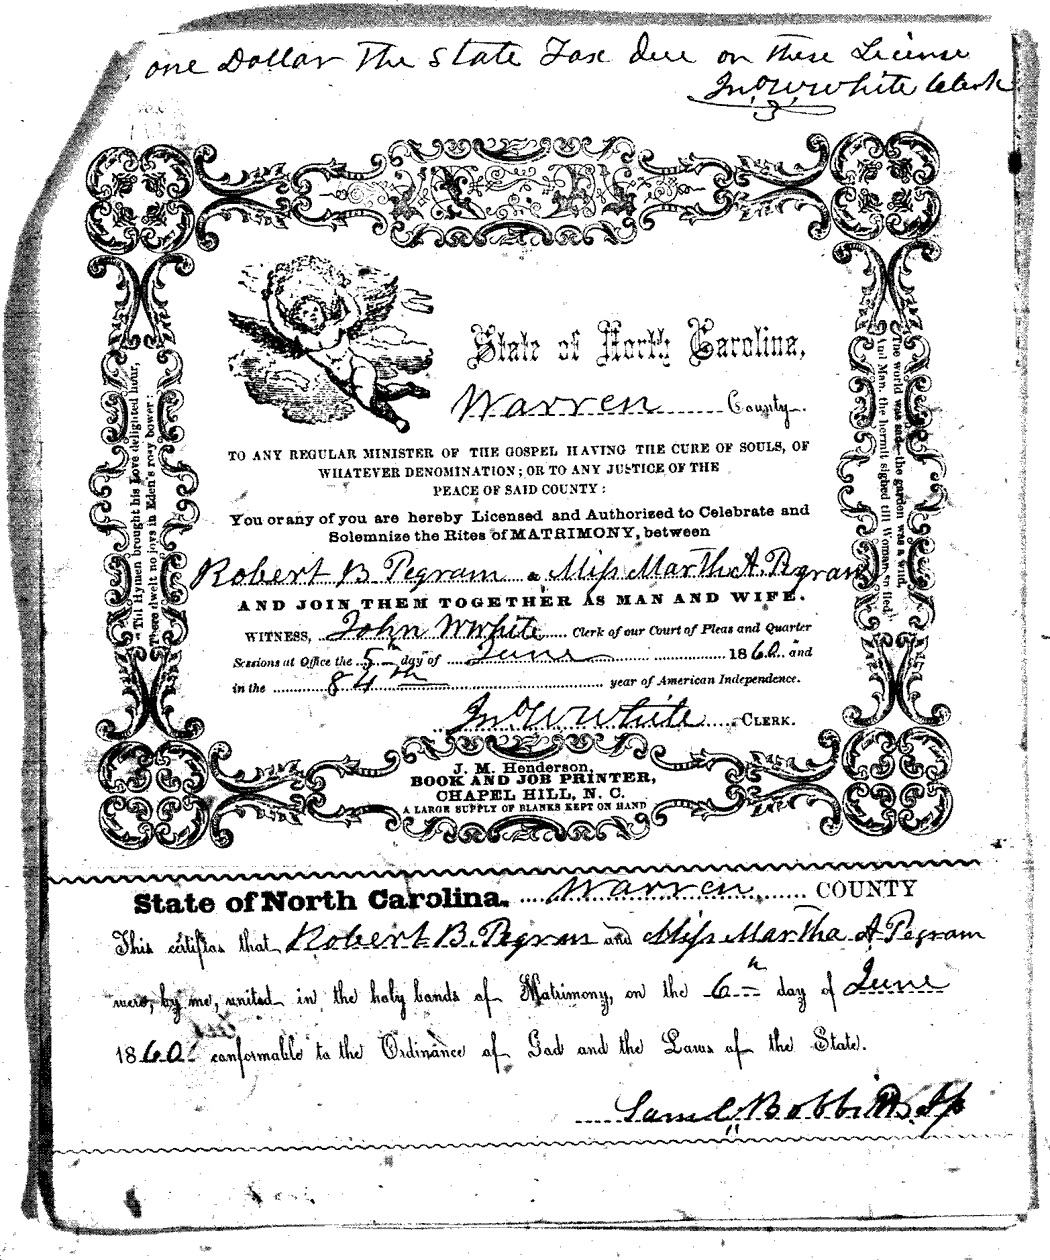 one Dollar The State Tax due on these License
Jno W White Clerk
State of North Carolina,
Warren County.
TO ANY REGULAR MINISTER OF THE GOSPEL HAVING THE CURE OF SOULS, OF
WHATEVER DENOMINATION; OR TO ANY JUSTICE OF THE
PEACE OF SAID COUNTY:
You or any of you are hereby Licensed and Authorized to Celebrate and
Solemnize the Rites of MATRIMONY, between
Robert B. Pegram & Miss Martha A. Pegram
AND JOIN THEM TOGETHER AS MAN AND WIFE.
WITNESS, John W White Clerk of our Court of Pleas and Quarter
Sessions at Office the 5th day of June 1860. and
in the 84th year of American Independence.
Jno W White CLERK.
"Till Hymen brought his Love delighted hour,
There dwelt no joys in Eden's rosy bower:
The world was sad—the garden was a wild,
And Man, the hermit sighed till Woman smiled."
J. M. Henderson,
BOOK AND JOB PRINTER,
CHAPEL HILL, N. C.
A LARGE SUPPLY OF BLANKS KEPT ON HAND
State of North Carolina. Warren COUNTY
This certifies that Robert B. Pegram and Miss Martha A Pegram
were, by me, united in the holy bands of Matrimony, on the 6th day of June
1860. conformable to the Ordinance of God and the Laws of the State.
Saml Bobbitt Jp